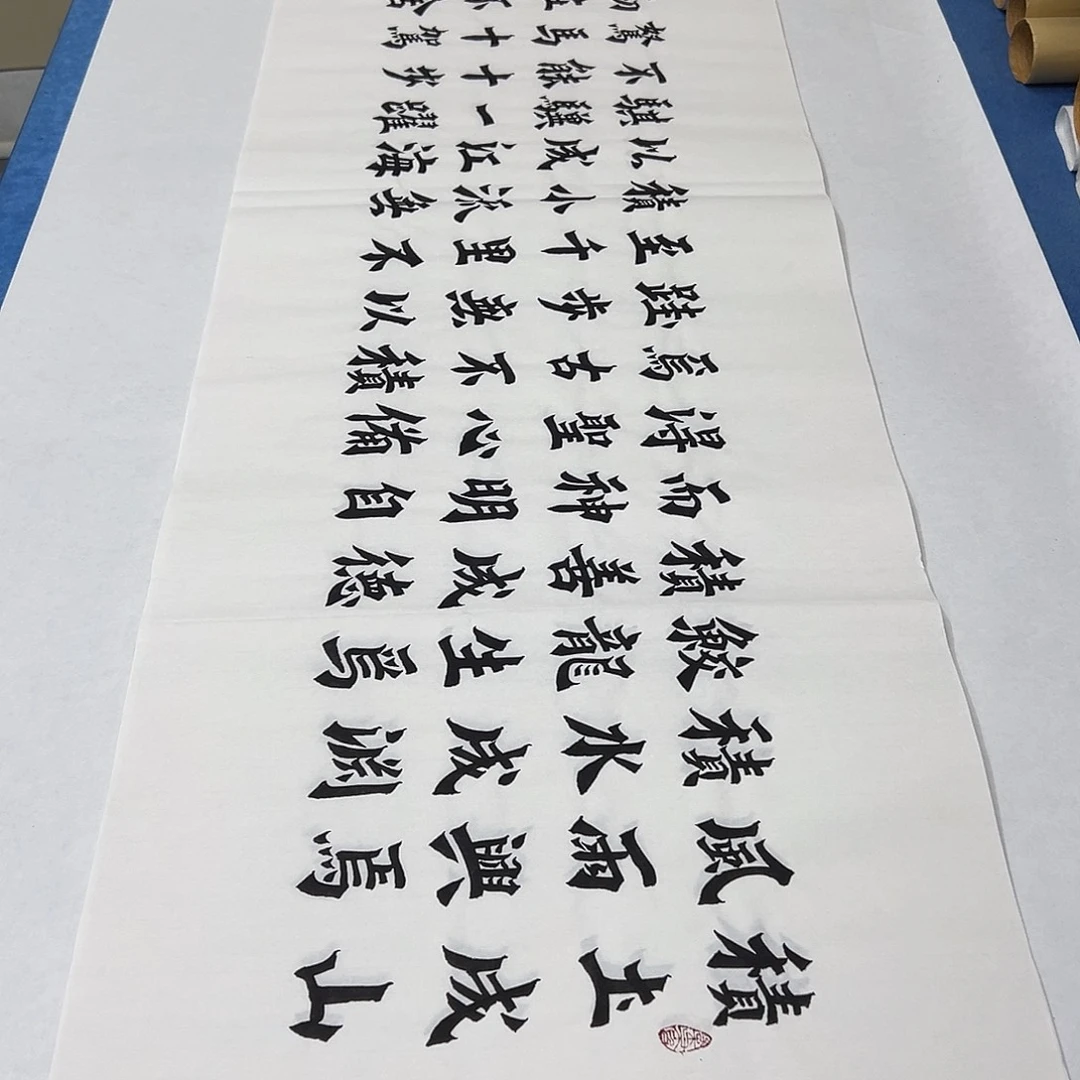 積土成山
風雨興焉
積水成淵
鮫龍生焉
積善成德
而神明自
得聖心備
焉古不積
跬步無以
至千里不
積小流無
以成江海
騏驥一躍
不能十步
駑馬十駕